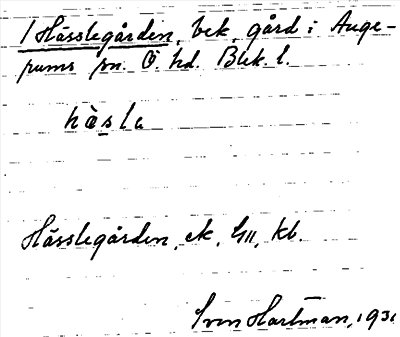 1 Hässlegården, bek. gård i Auge-
rums sn. Ö. hd. Blek. l.
hàsla
Hässlegården, ek, GII, kb.
Sven Hartman, 1931